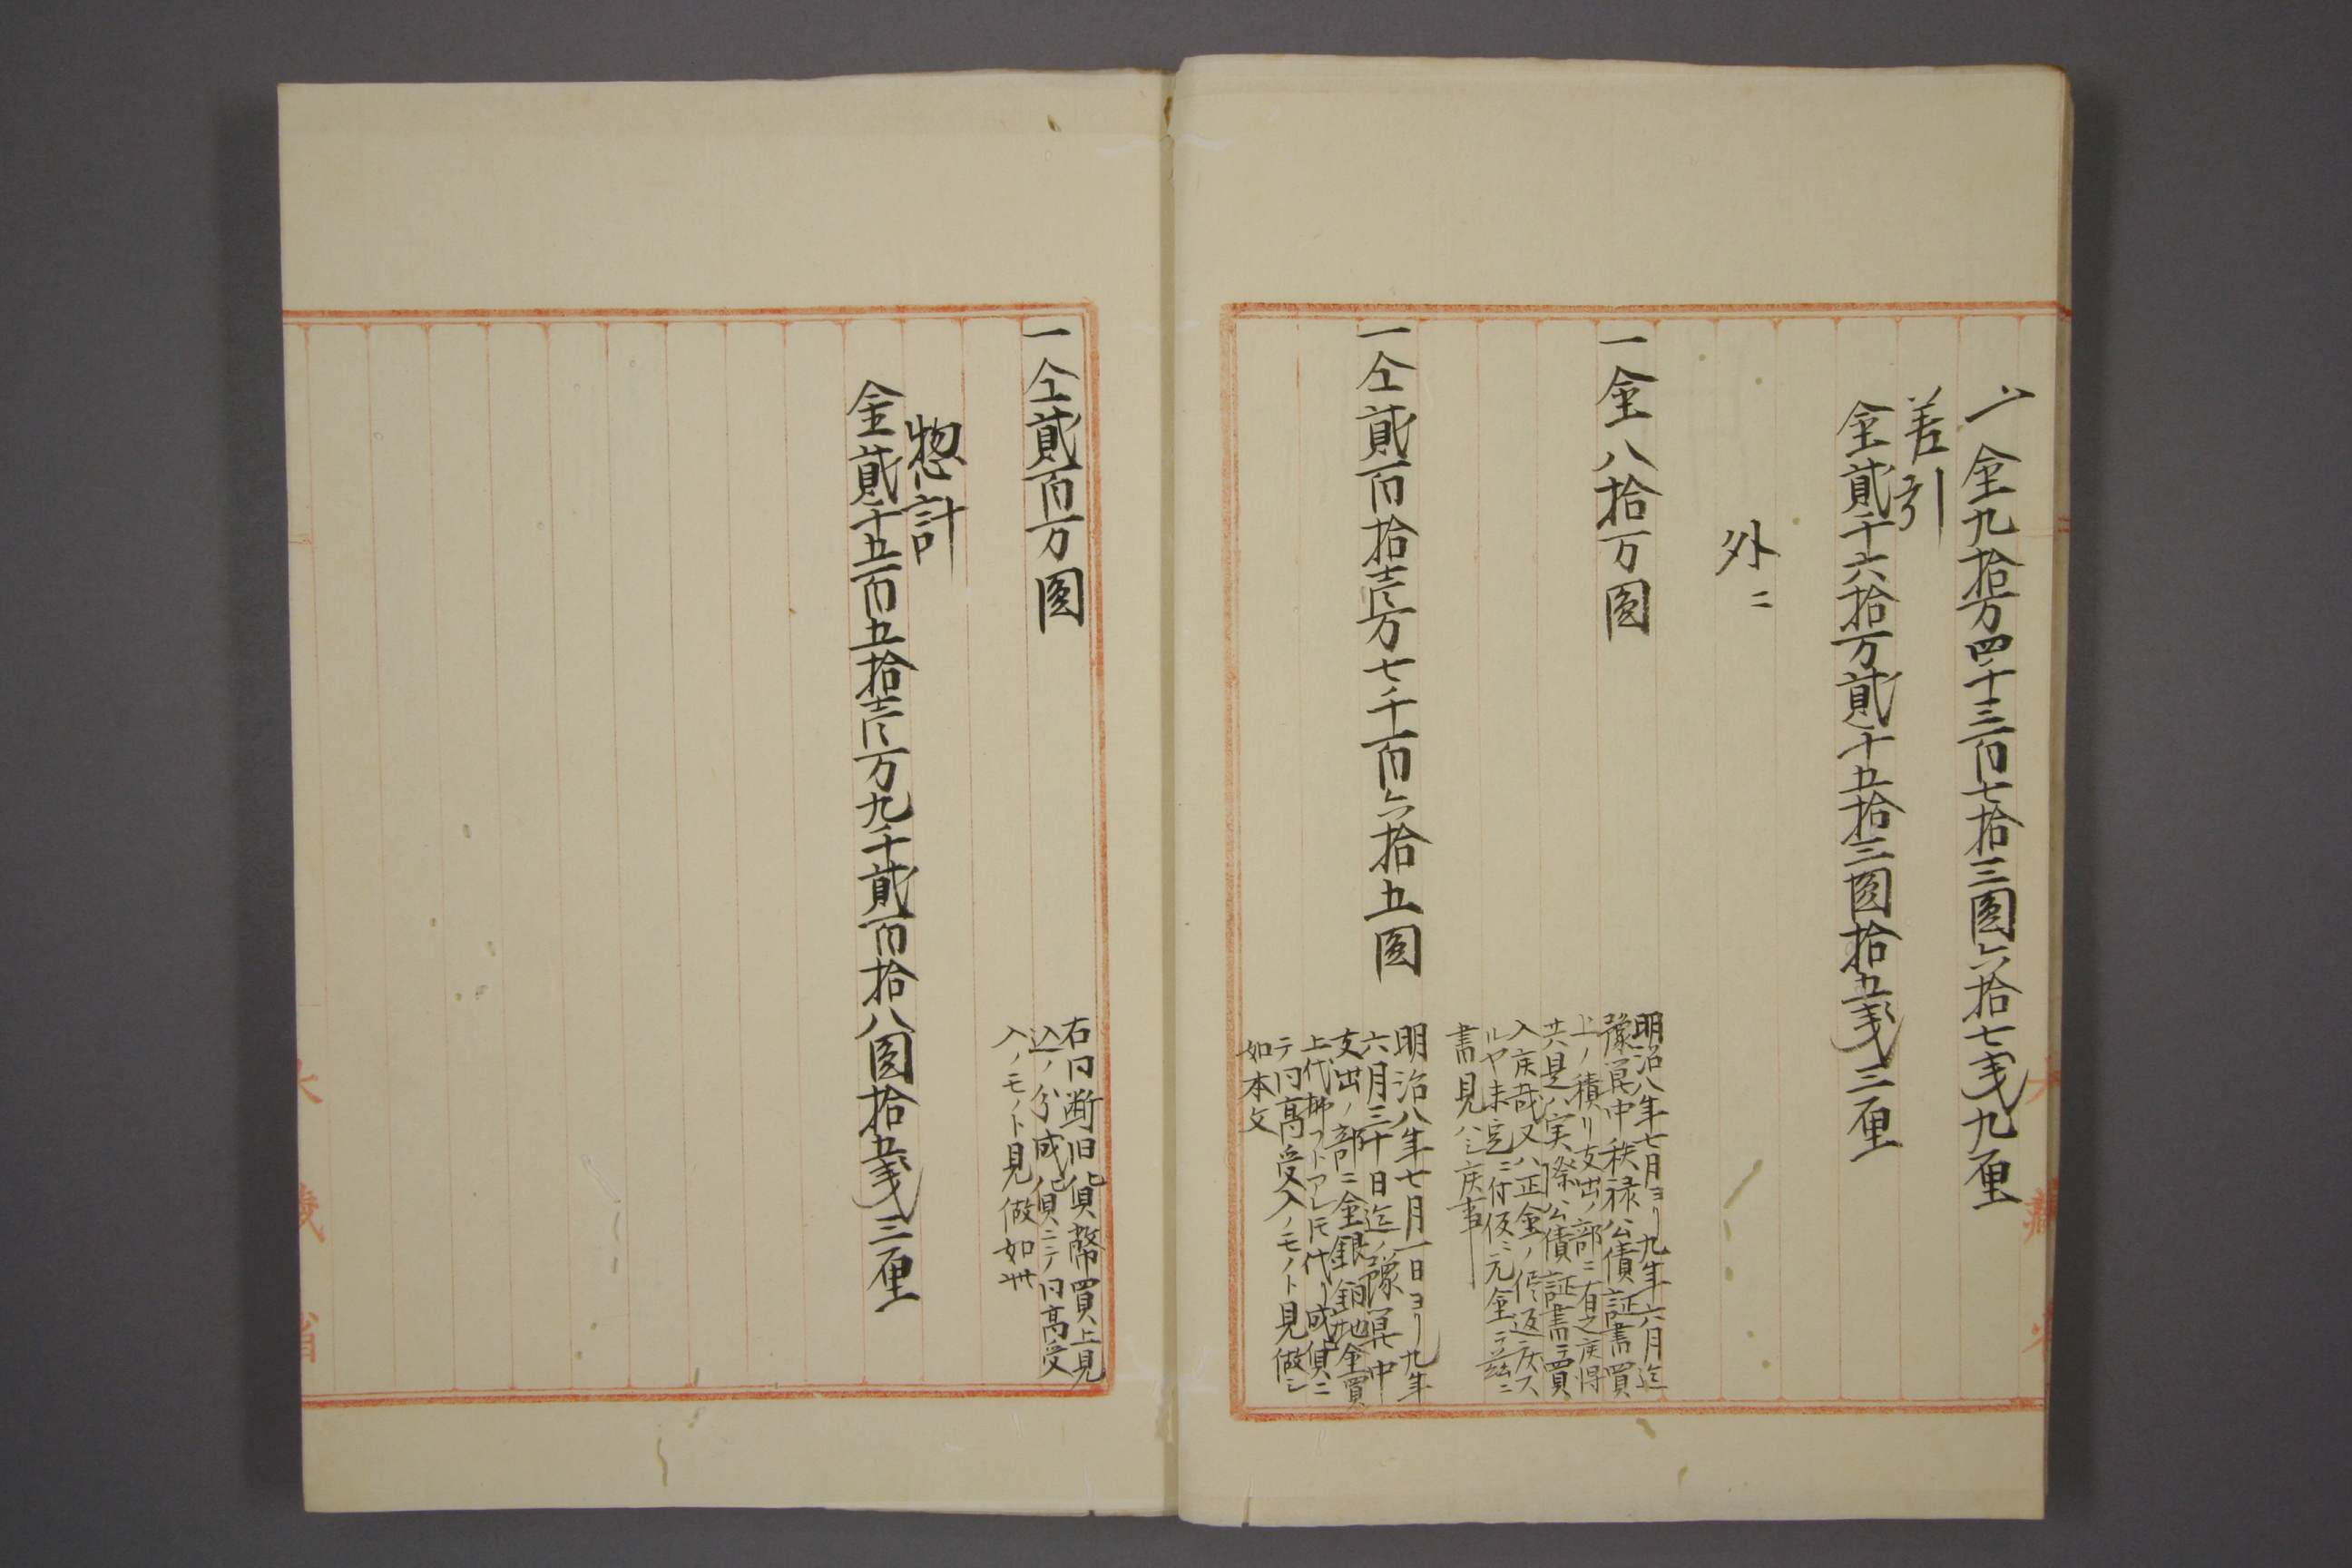 〆金九拾万四千三百七拾三圓六拾七戋九厘
差引
金貳千六拾万貳千五拾三圓拾五戋三厘
外ニ
一金八拾万圓
明治八年七月ヨリ九年六月迄
豫算中秩禄公債証書買
上ノ積リ支出ノ部ニ有之候得
共是ハ実際公債証書ニテ買
入候哉又ハ正金ノ償返ニ候ス
ルヤ未定ニ付仮ニ元金ニ立茲ニ
書見ハシ候事
一仝貳百拾壱万七千百六拾五圓
明治八年七月一日ヨリ九年
六月三十日迄ノ豫算中
支出ノ部ニ金銀銅地金買
上代拂フトアレ圧代リ成貨ニ
テ同髙受入ノモノト見做シ
如本文
一仝貳百万圓
右同断旧貨幣買上見
込ノ分成貨ニテ同髙受
入ノモノト見做如斯
惣計
金貳千五百五拾壱万九千貳百拾八圓拾五戋三厘
大藏省